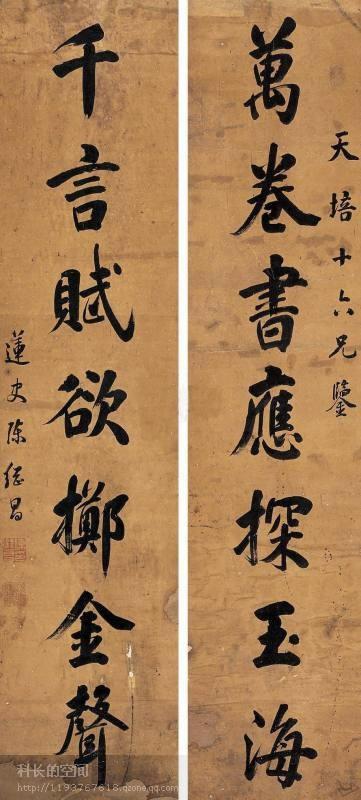 天培十六兄鑒
萬卷書應探玉海
千言賦欲擲金聲
蓮史陳繼昌
科长的空间
http://1193767618.qzone.qq.com